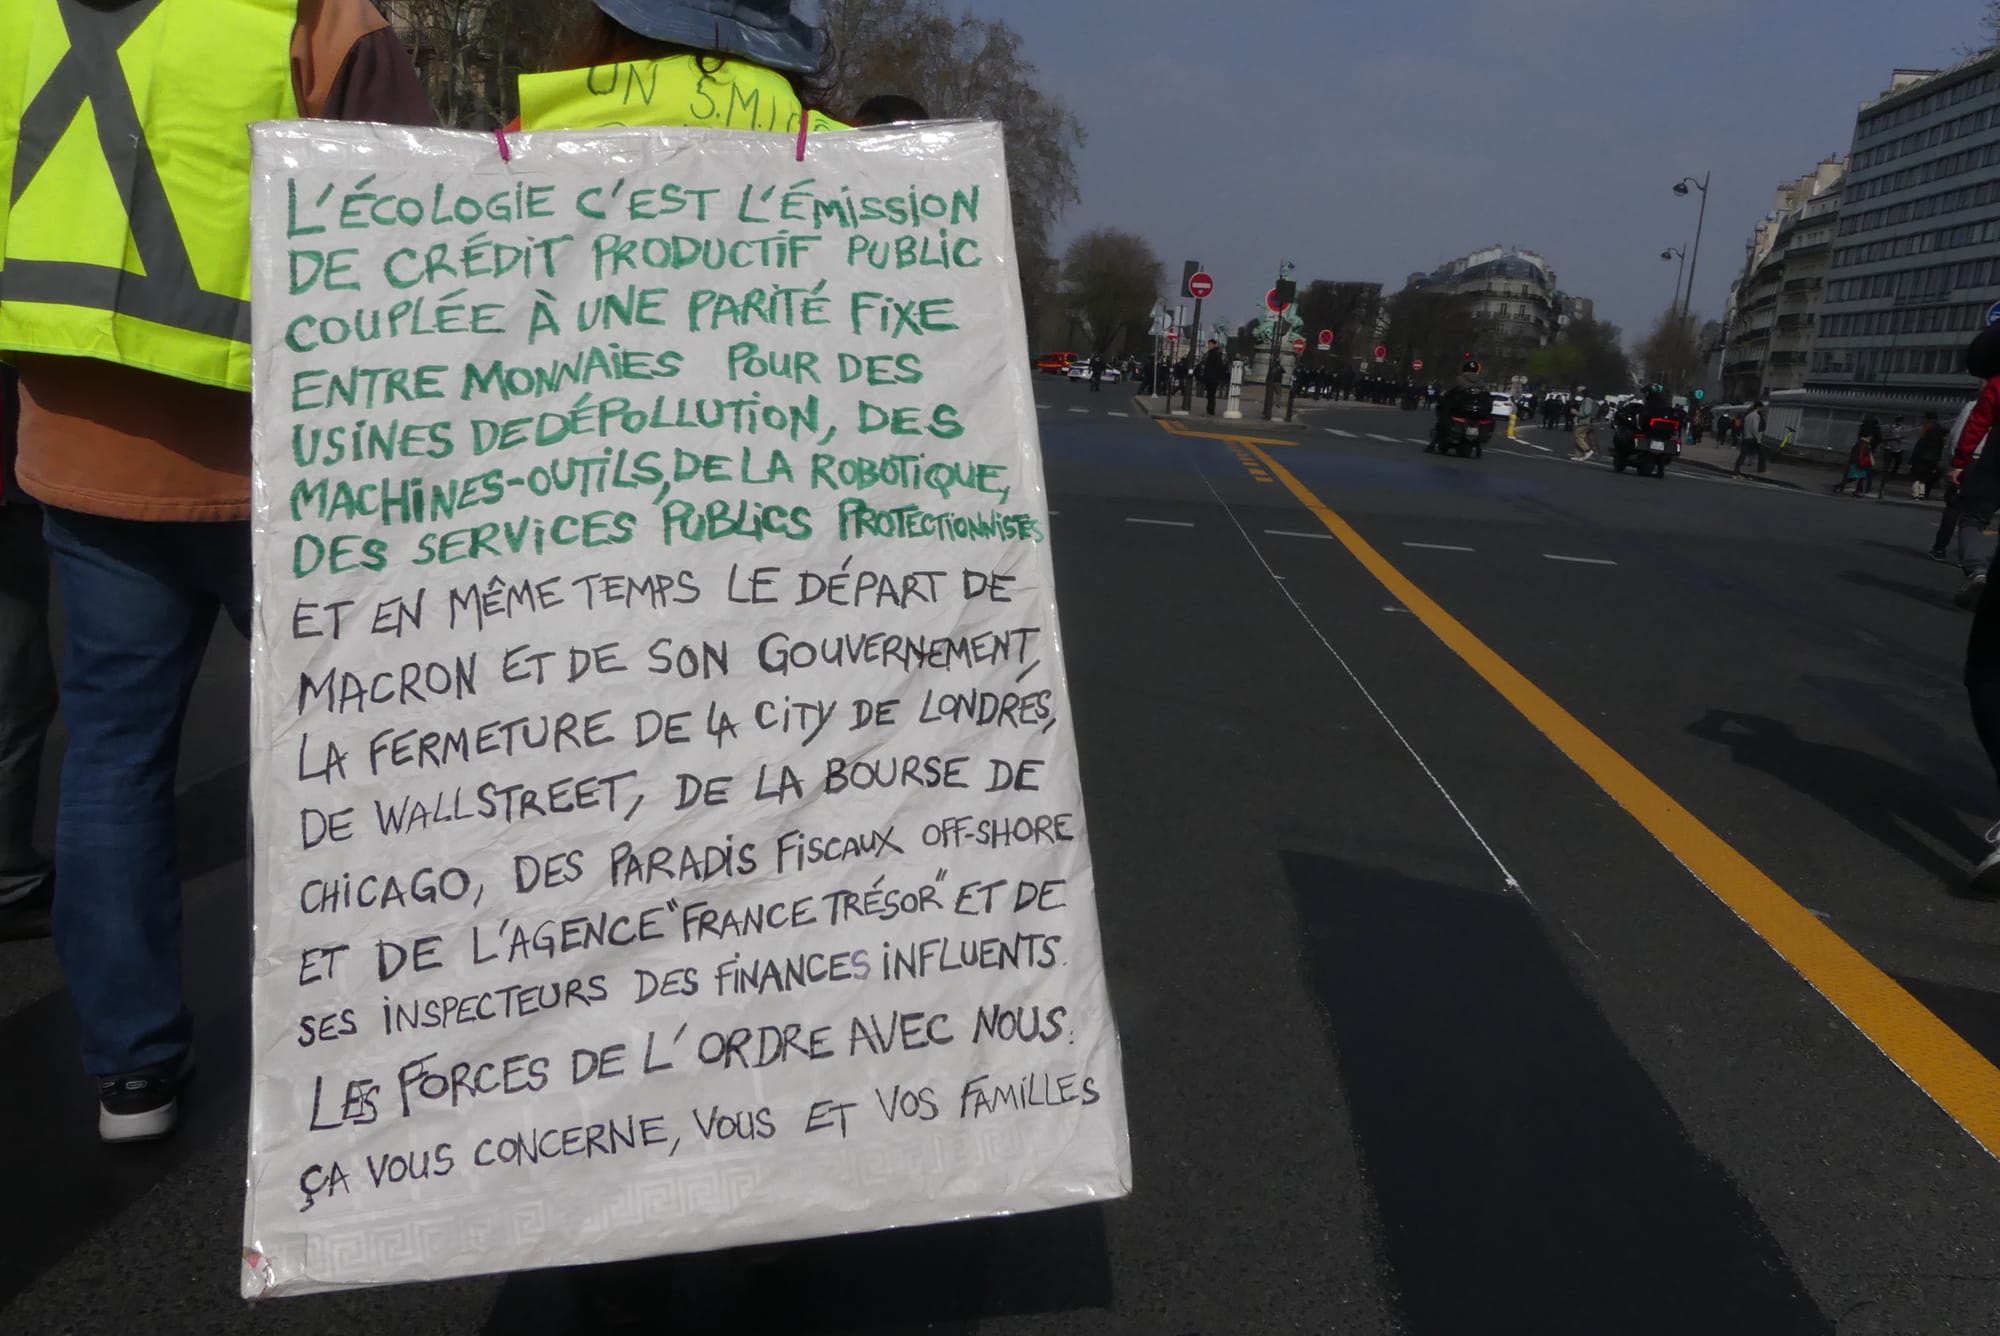 UN S.M.I
L'ÉCOLOGIE C'EST L'ÉMISSION
DE CRÉDIT PRODUCTIF PUBLIC
COUPLÉE À UNE PARITÉ FIXE
ENTRE MONNAIES POUR DES
USINES DE DÉPOLLUTION, DES
MACHINES-OUTILS, DE LA ROBOTIQUE,
DES SERVICES PUBLICS PROTECTIONNISTES
ET EN MÊME TEMPS LE DÉPART DE
MACRON ET DE SON GOUVERNEMENT,
LA FERMETURE DE LA CITY DE LONDRES,
DE WALLSTREET, DE LA BOURSE DE
CHICAGO, DES PARADIS FISCAUX OFF-SHORE
ET DE L'AGENCE "FRANCE TRÉSOR" ET DE
SES INSPECTEURS DES FINANCES INFLUENTS.
LES FORCES DE L'ORDRE AVEC NOUS.
ÇA VOUS CONCERNE, VOUS ET VOS FAMILLES